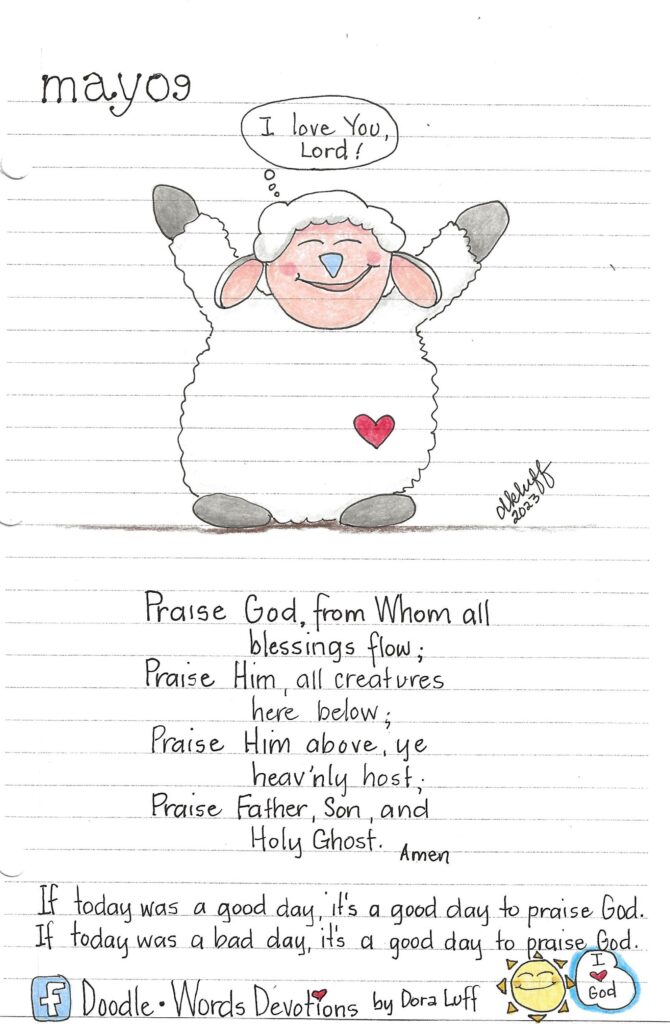 may09
I love You,
Lord!
dkluff
2023
Praise God, from Whom all
blessings flow;
Praise Him, all creatures
here below;
Praise Him above, ye
heav'nly host;
Praise Father, Son, and
Holy Ghost.
Amen
If today was a good day, it's a good day to praise God.
If today was a bad day, it's a good day to praise God.
f Doodle • Words Devotions by Dora Luff
I
God